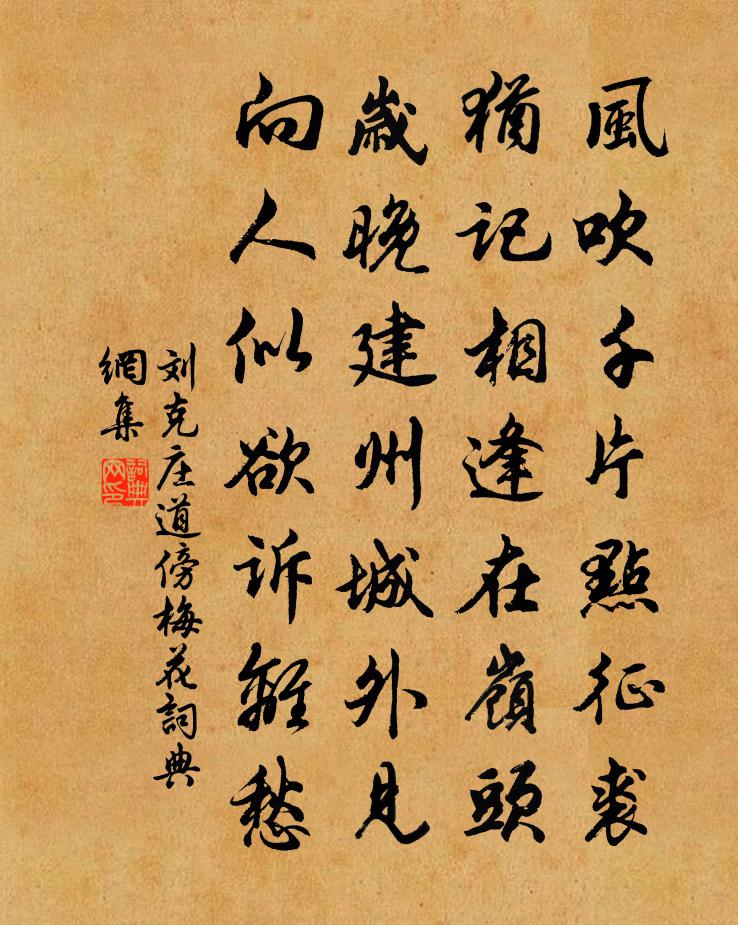 風吹千片點征裘
猶記相逢在嶺頭
歲晚建州城外見
向人似欲訴離愁
刘克庄道傍梅花詞典
網集
詞典
网印